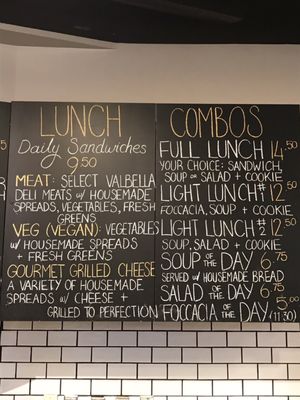 LUNCH
Daily Sandwiches
9.50
MEAT: SELECT VALBELLA
DELI MEATS w/ HOUSEMADE
SPREADS, VEGETABLES, FRESH
GREENS
VEG (VEGAN): VEGETABLES
w/ HOUSEMADE SPREADS
+ FRESH GREENS
GOURMET GRILLED CHEESE
A VARIETY OF HOUSEMADE
SPREADS w/ CHEESE +
GRILLED TO PERFECTION
COMBOS
FULL LUNCH 14.50
YOUR CHOICE: SANDWICH,
SOUP OR SALAD + COOKIE
LIGHT LUNCH #1 12.50
FOCCACIA, SOUP + COOKIE
LIGHT LUNCH #2 12.50
SOUP, SALAD + COOKIE
SOUP OF THE DAY 6.75
SERVED w/ HOUSEMADE BREAD
SALAD OF THE DAY 6.75
FOCCACIA OF THE DAY 5.00
(11:30)